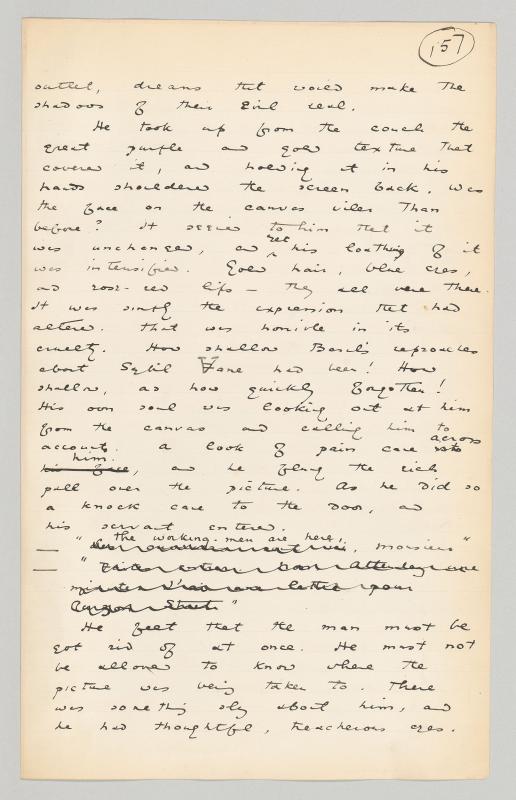 157
outlet, dreams that would make the
shadows of their evil real.
He took up from the couch the
great purple and gold texture that
covered it, and holding it in his
hands shouldered the screen back. Was
the face on the canvas viler than
before? It seemed to him that it
was unchanged, and yet his loathing of it
was intensified. Gold hair, blue eyes,
and rose-red lips – they all were there.
It was simply the expression that had
altered. That was horrible in its
cruelty. How shallow Basil's reproaches
about Sybil Vane had been! How
shallow, and how quickly forgotten!
His own soul was looking out at him
from the canvas and calling him to
account. A look of pain came across
him, and he flung the rich
pall over the picture. As he did so
a knock came to the door, and
his servant entered.
— "The working-men are here, monsieur"
— "
"
He felt that the man must be
got rid of at once. He must not
be allowed to know where the
picture was being taken to. There
was something sly about him, and
he had thoughtful, treacherous eyes.